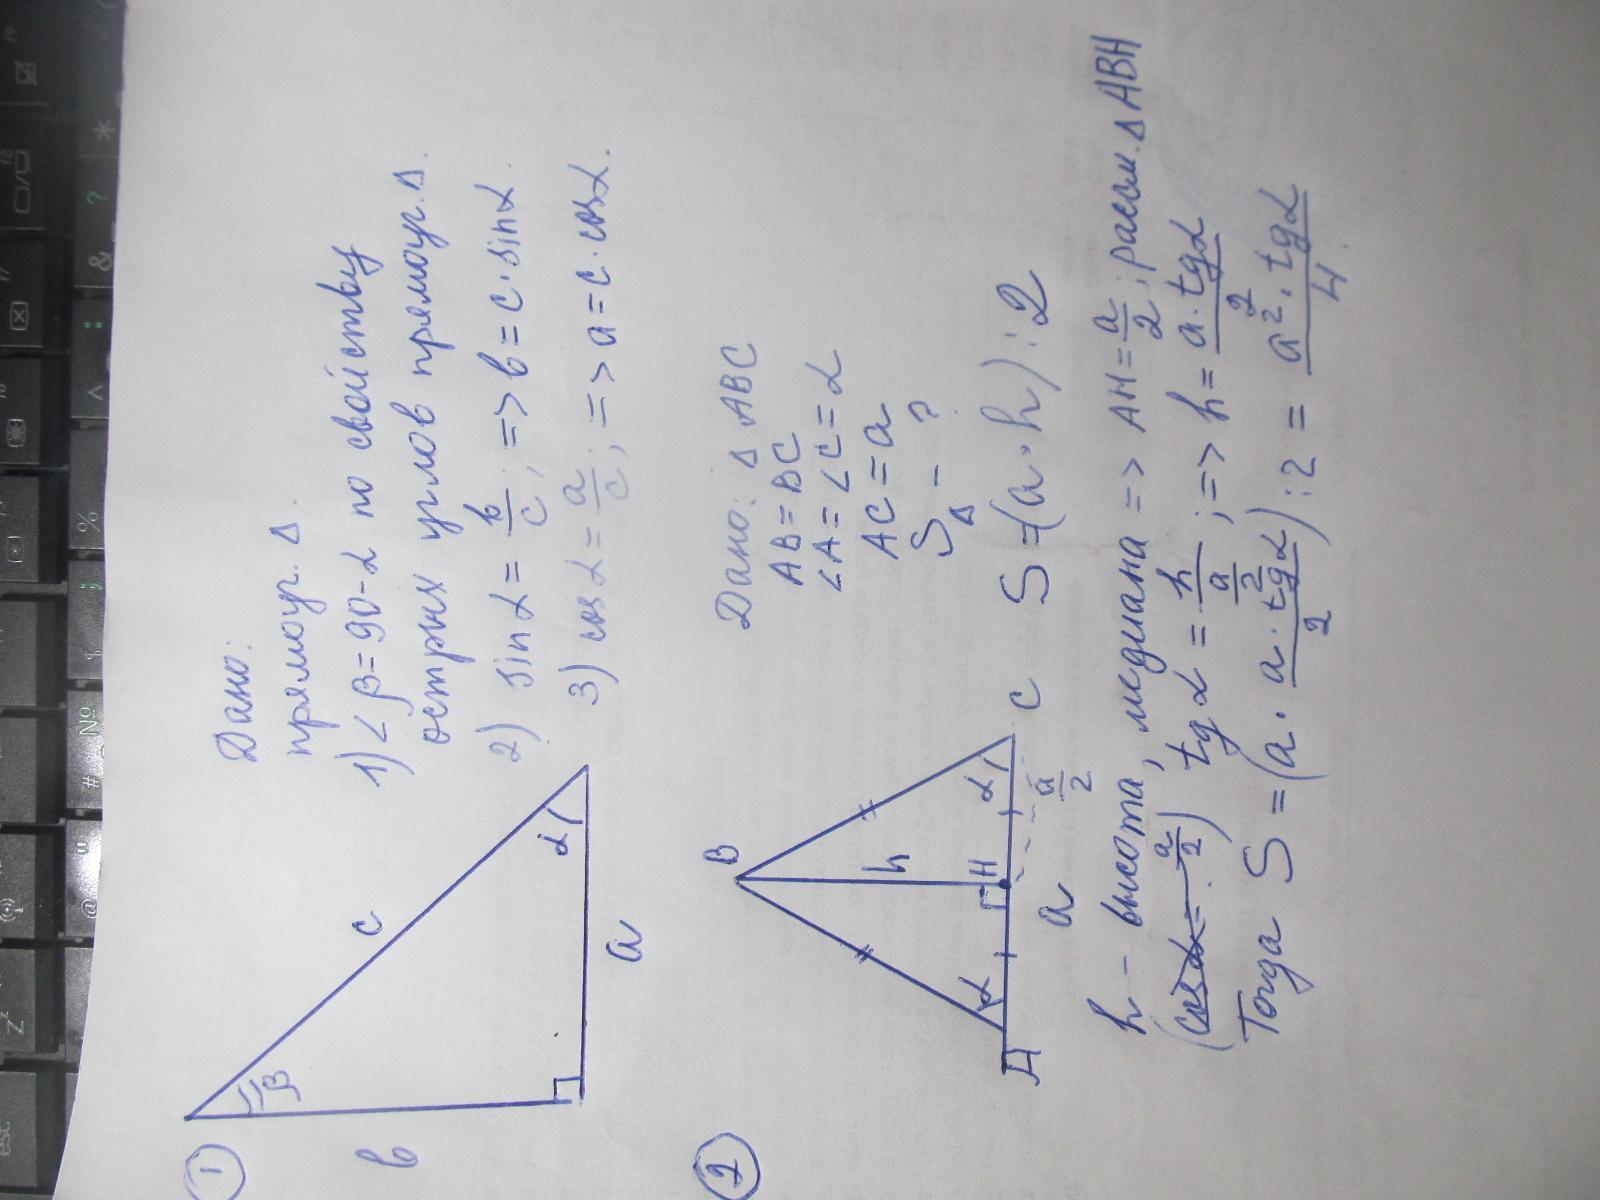 ①
Дано:
прямоуг. Δ.
1) ∠β=90-α по свойству
острых углов прямоуг. Δ.
2) sin α = в/c; => в = c · sin α.
3) cos α = a/c; => a = c · cos α.
β
в
c
α
a
②
Дано: Δ ABC
AB = BC
∠A = ∠C = α
AC = a
SΔ - ?
S = (a · h) : 2
B
h
α
H
α
A
a
a/2
C
h - высота, медиана => AH = a/2; рассм. Δ ABH
(cos α = a/2) tg α = h/(a/2); => h = (a · tg α)/2
Тогда S = (a · (a · tg α)/2) : 2 = (a² · tg α)/4.
esc
Z
@
"
#
№
$
;
%
^
:
&
?
*
(